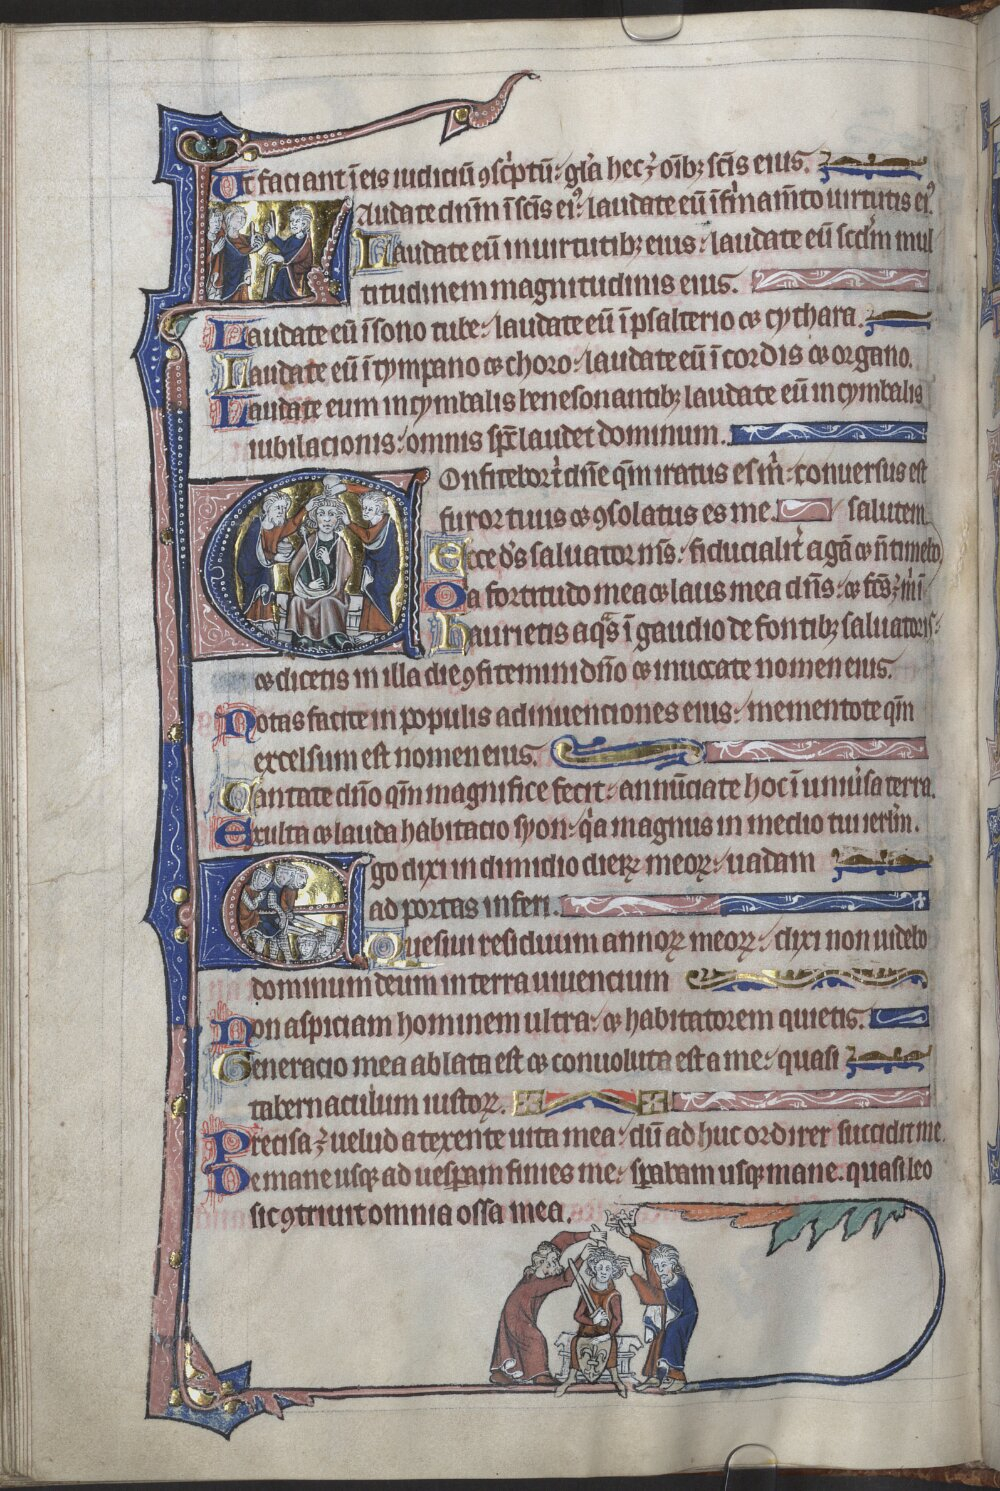 Ut faciant ĩ eis iudiciũ ꝯsc̾ptũ: gl̃a hec ꝫ oĩbꝫ scĩs eius.
Laudate dñm ĩ scĩs eiꝰ: laudate eũ ĩ firmam̃to uirtutis eiꝰ.
Laudate eũ in uirtutibꝫ eius: laudate eũ scd̃m mul
titudinem magnitudinis eius.
Laudate eũ ĩ sono tube: laudate eũ ĩ psalterio ⁊ cythara.
Laudate eũ ĩ tympano ⁊ choro: laudate eũ ĩ cordis ⁊ organo.
Laudate eum in cymbalis benesonantibꝫ laudate eũ in cymbalis
iubilacionis: omnis sp̃c laudet dominum.
Confitebor t̾ dñe qm̃ iratus es m̃: conuersus est
furor tuus ⁊ ꝯsolatus es me. salutem
Ecce dš saluator m̃s: fiducialit̾ agã ⁊ ñ timebo
Qa fortitudo mea ⁊ laus mea dñs: ⁊ fc̃s ꝫ m̃ ĩ
Haurietis aq̃s ĩ gaudio de fontibꝫ saluatoris:
⁊ dicetis in illa die ꝯfitemini dño ⁊ inuocate nomen eius.
Notas facite in populis adinuenciones eius: mementote qm̃
excelsum est nomen eius.
Cantate dño qm̃ magnifice fecit: annũciate hoc ĩ uniũsa terra.
Exulta ⁊ lauda habitacio syon: q̾a magnus in medio tui isrl̃m.
Ego dixi in dimidio dierꝝ meoꝝ: uadam
ad portas inferi.
Quesiui residuum annoꝝ meoꝝ: dixi non uidebo
dominum deum in terra uiuencium
Non aspiciam hominem ultra: ⁊ habitatorem quietis.
Generacio mea ablata est ⁊ conuoluta est a me: quasi
tabernaculum iustoꝝ.
Precisa ꝫ uelud a texente uita mea: dũ ad huc ordirer succidit me.
De mane usqꝫ ad uesꝑam finies me: sꝑabam usqꝫ mane. quasi leo
sic ꝯtriuit omnia ossa mea.